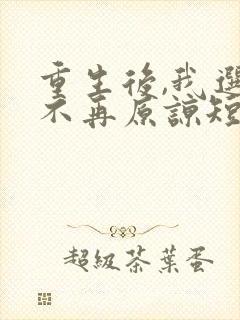 重生後,我選
不再原諒短
超級茶葉蛋